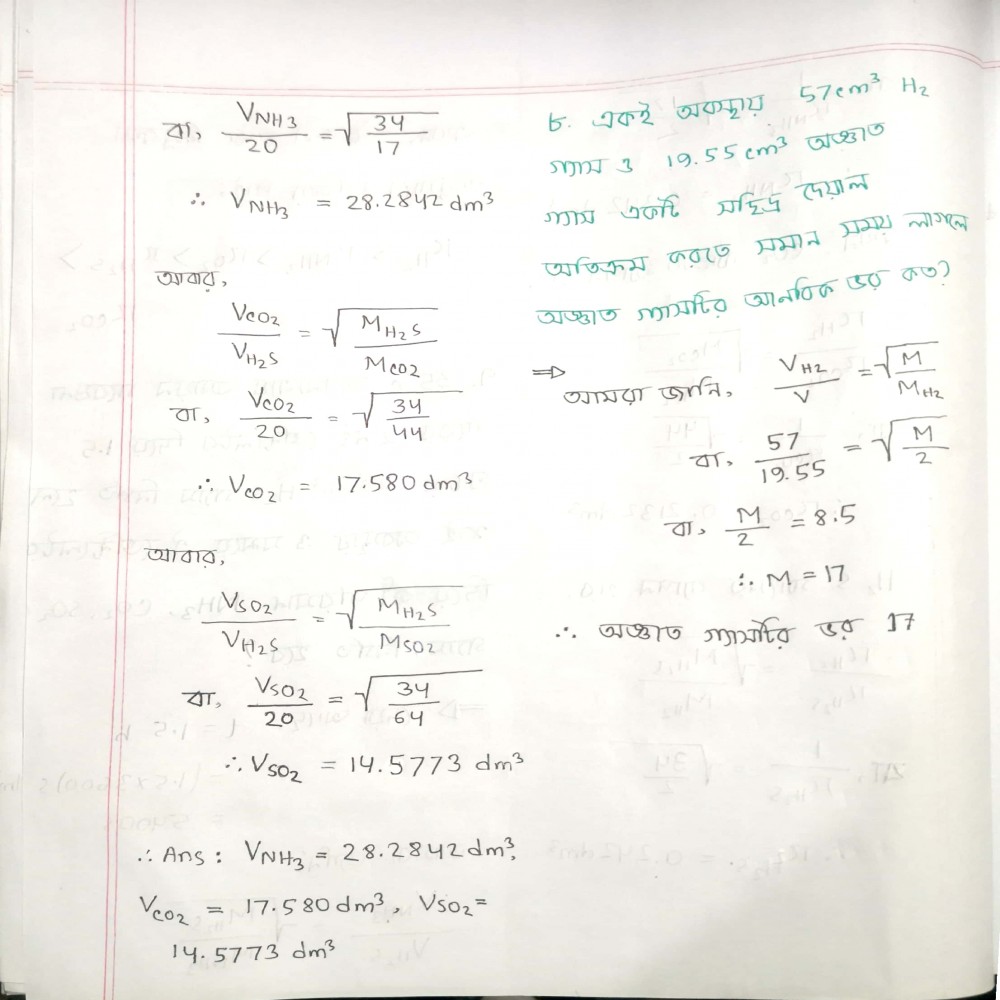 বা, V_NH3/20 = √(34/17)
∴ V_NH3 = 28.2842 dm³
আবার,
V_CO2/V_H2S = √(M_H2S/M_CO2)
বা, V_CO2/20 = √(34/44)
∴ V_CO2 = 17.580 dm³
আবার,
V_SO2/V_H2S = √(M_H2S/M_SO2)
বা, V_SO2/20 = √(34/64)
∴ V_SO2 = 14.5773 dm³
∴ Ans : V_NH3 = 28.2842 dm³,
V_CO2 = 17.580 dm³, V_SO2 =
14.5773 dm³
৮. একই অবস্থায় 57cm³ H₂
গ্যাস ও 19.55cm³ অজ্ঞাত
গ্যাস একটি সছিদ্র দেয়াল
অতিক্রম করতে সমান সময় লাগলে
অজ্ঞাত গ্যাসটির আনবিক ভর কত?
⇒ আমরা জানি, V_H2/V = √(M/M_H2)
বা, 57/19.55 = √(M/2)
বা, M/2 = 8.5
∴ M = 17
∴ অজ্ঞাত গ্যাসটির ভর 17